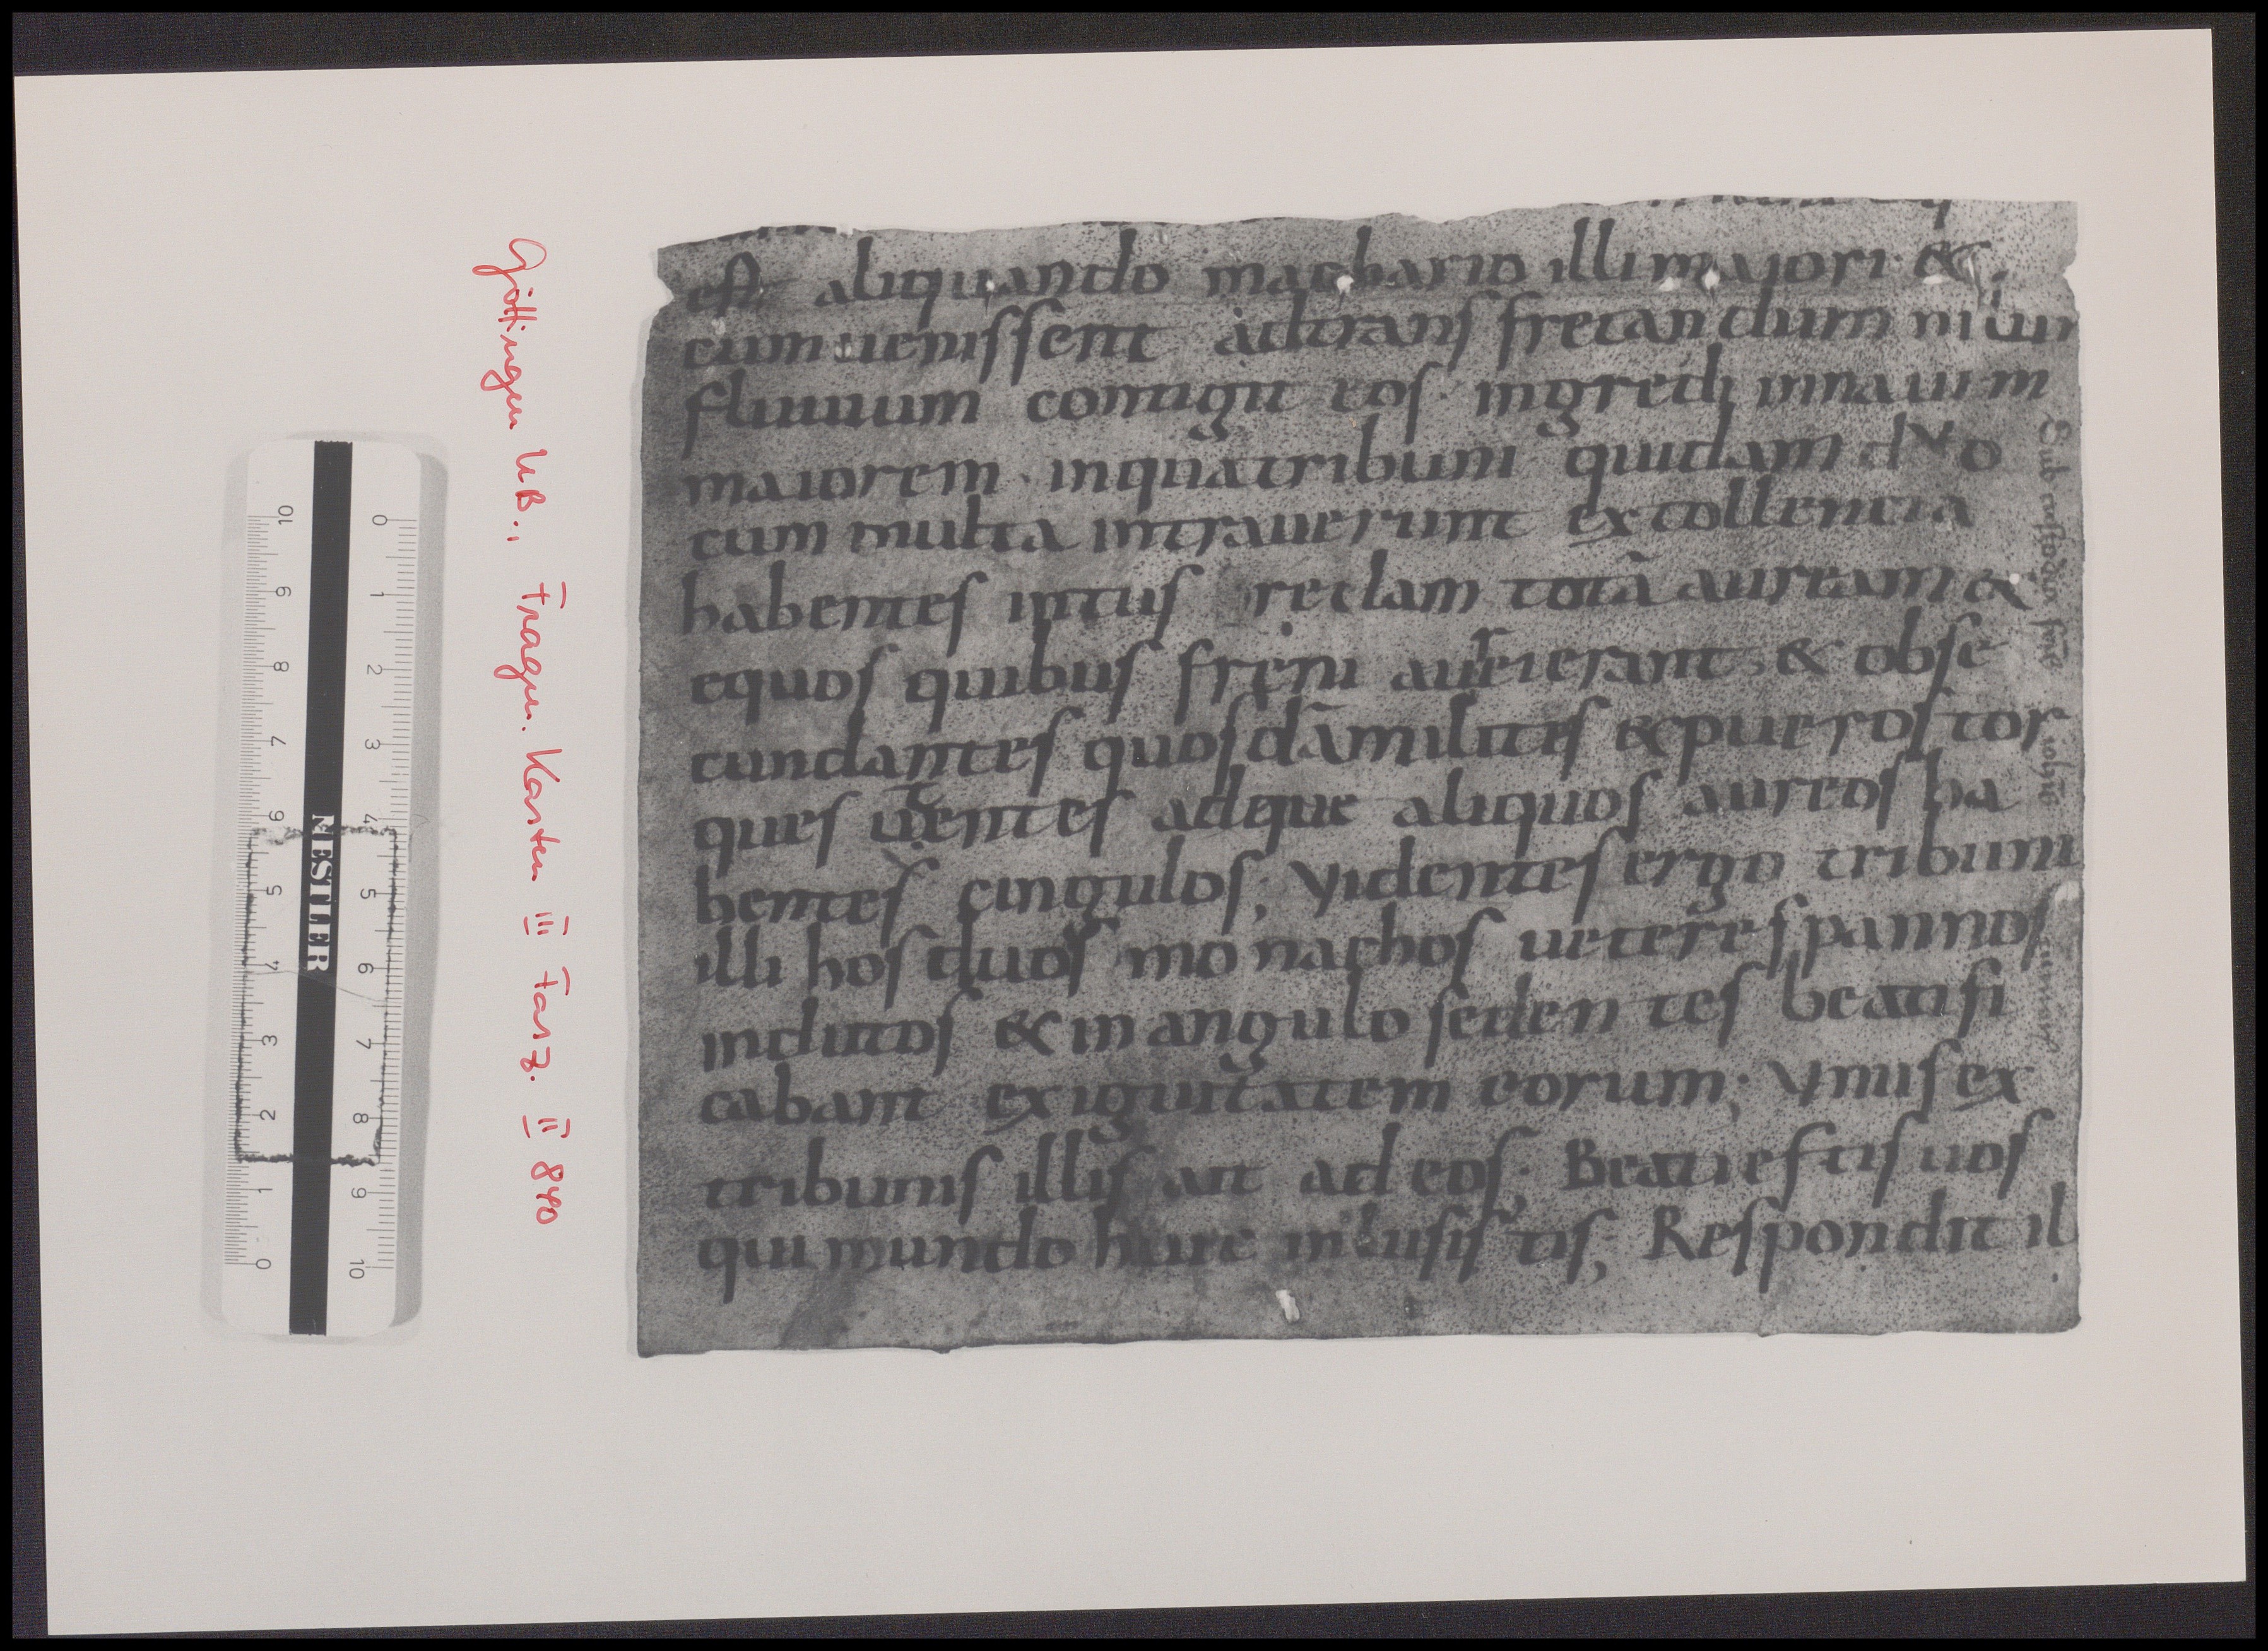 est aliquando machario illi majori &
cum uenissent adtransfretandum nilum
fluuium contigit eos ingredi innauim
maiorem inqua tribuni quidam duo
cum multa intrauerunt extollencia
habentes intus redam totā auream &
equos quibus freni aurei erant, & obse
cundantes quosdā milites & pueros tor
ques utentes adque aliquos aureos ha
bentes cingulos; Videntes ergo tribuni
illi hos duos monachos ueteres pannos
indutos & in angulo sedentes beatifi
cabant exiguitatem eorum; Vnus ex
tribunis illis ait ad eos; Beati estis uos
qui mundo huic inlusistis; Respondit il
Göttingen UB., Fragm. Karton III Fasz. II 840
NESTLER
0 1 2 3 4 5 6 7 8 9 10
10 9 8 7 6 5 4 3 2 1 0